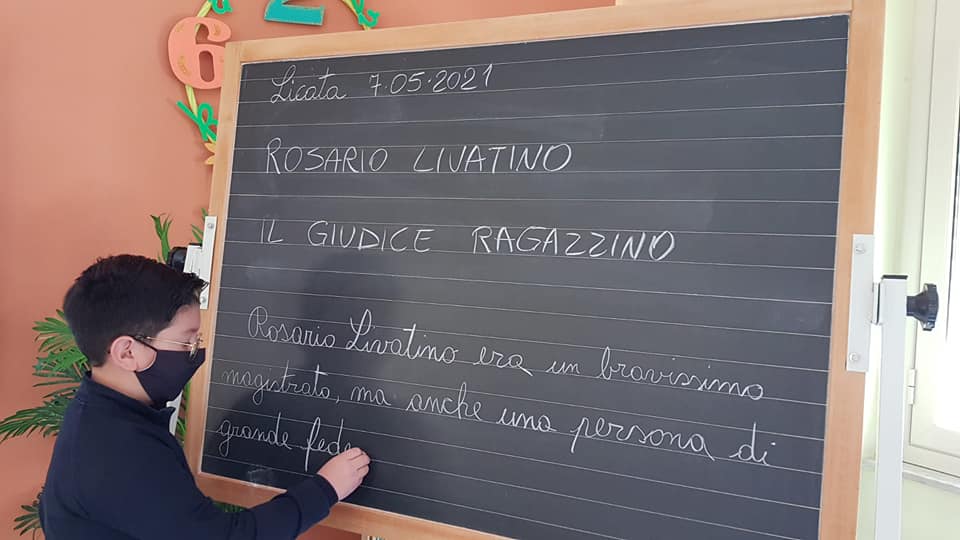 6 2
Licata 7.05.2021
ROSARIO LIVATINO
IL GIUDICE RAGAZZINO
Rosario Livatino era un bravissimo
magistrato, ma anche una persona di
grande fede